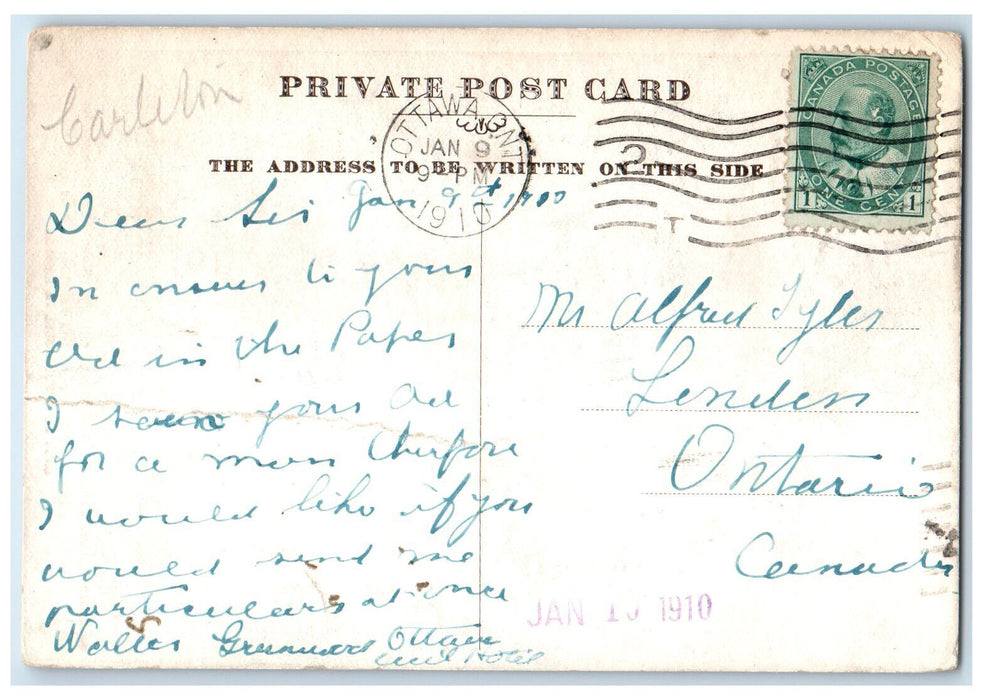 Carleton
PRIVATE POST CARD
OTTAWA ONT
JAN 9
9 PM
1910
THE ADDRESS TO BE WRITTEN ON THIS SIDE
CANADA POSTAGE
1 ONE CENT 1
Jan 9th 1910
Dear Sir
In answer to your
ad in the Paper
I seen your ad
for a man Therfore
I would like if you
would send me
particulears at once
Walter Greenwood Ottawa
Hotel
Mr Alfred Tyler
London
Ontario
Canada
JAN 10 1910